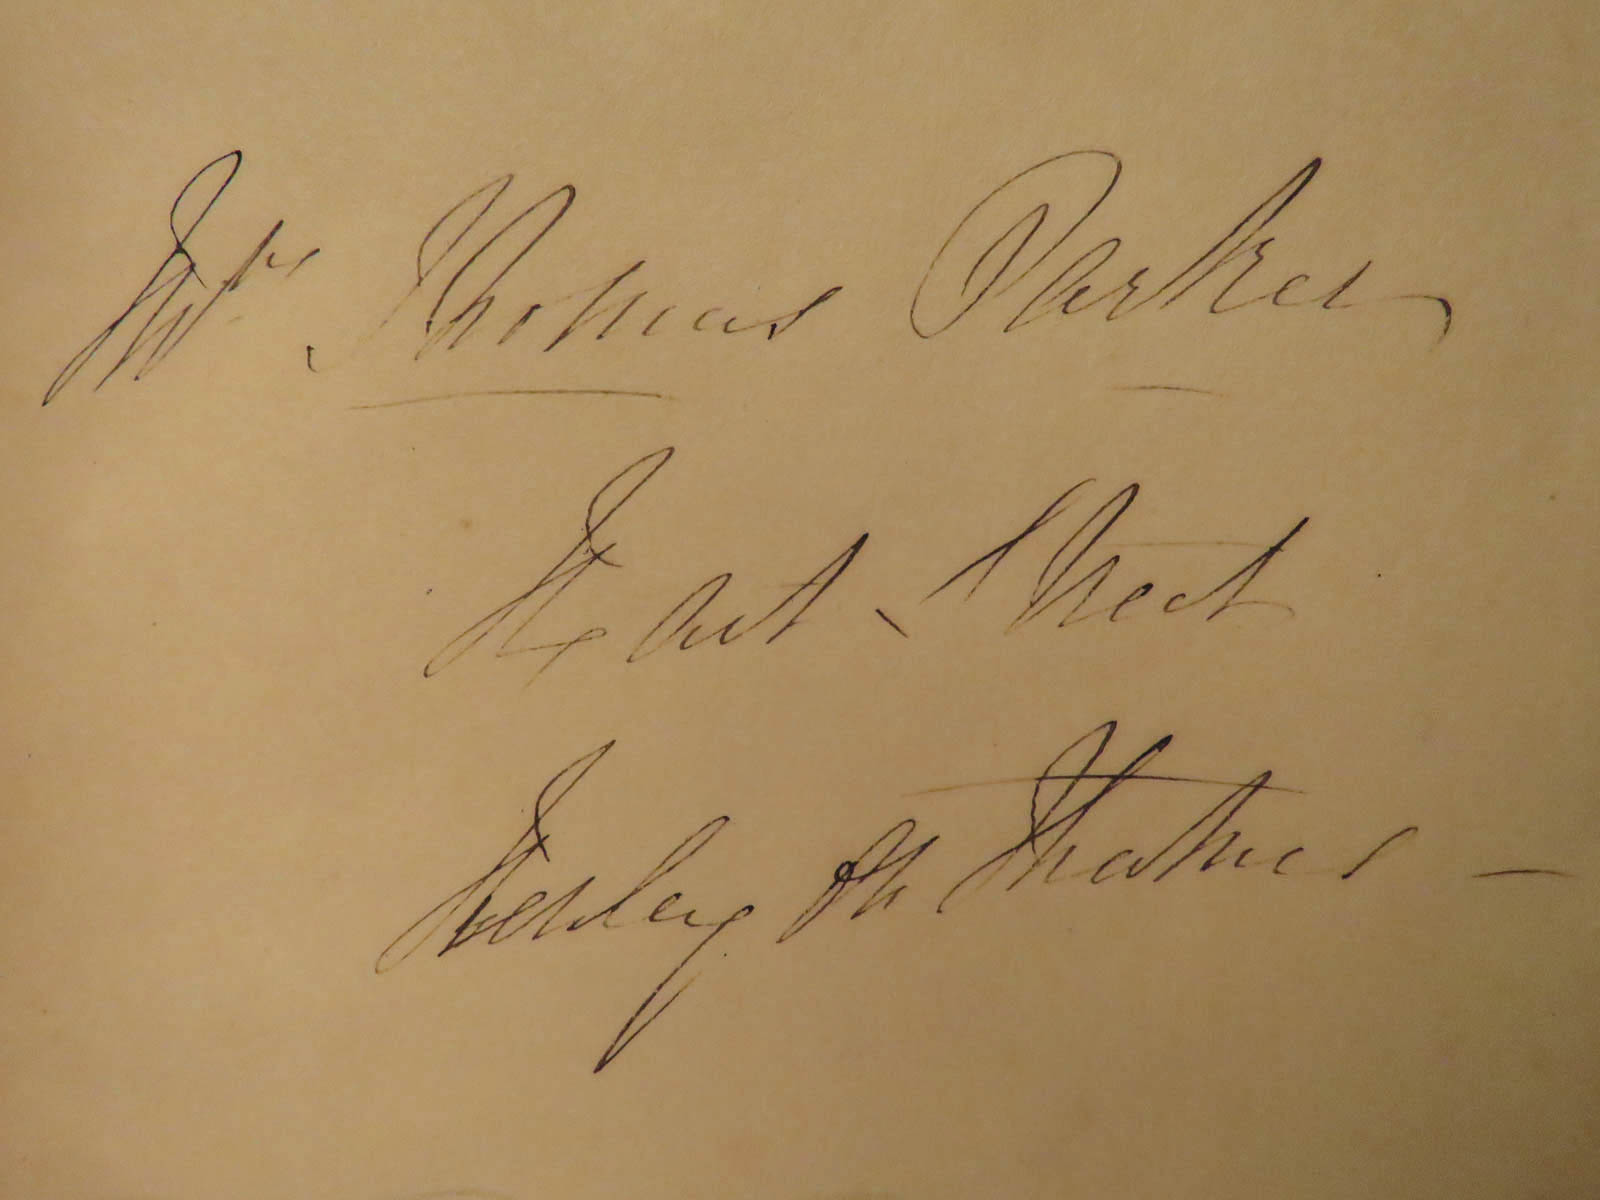 Mrs Thomas Parker
Hart Street
Henley on Thames —